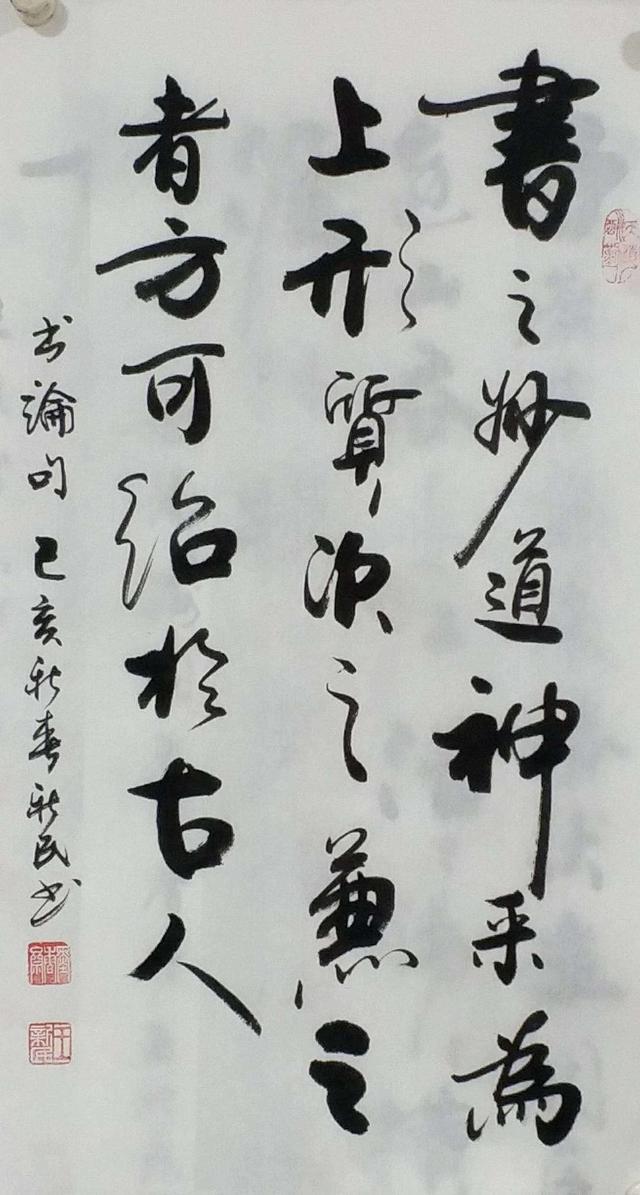 書之妙道神采為
上形質次之兼之
者方可紹於古人
书論句己亥新春新民书